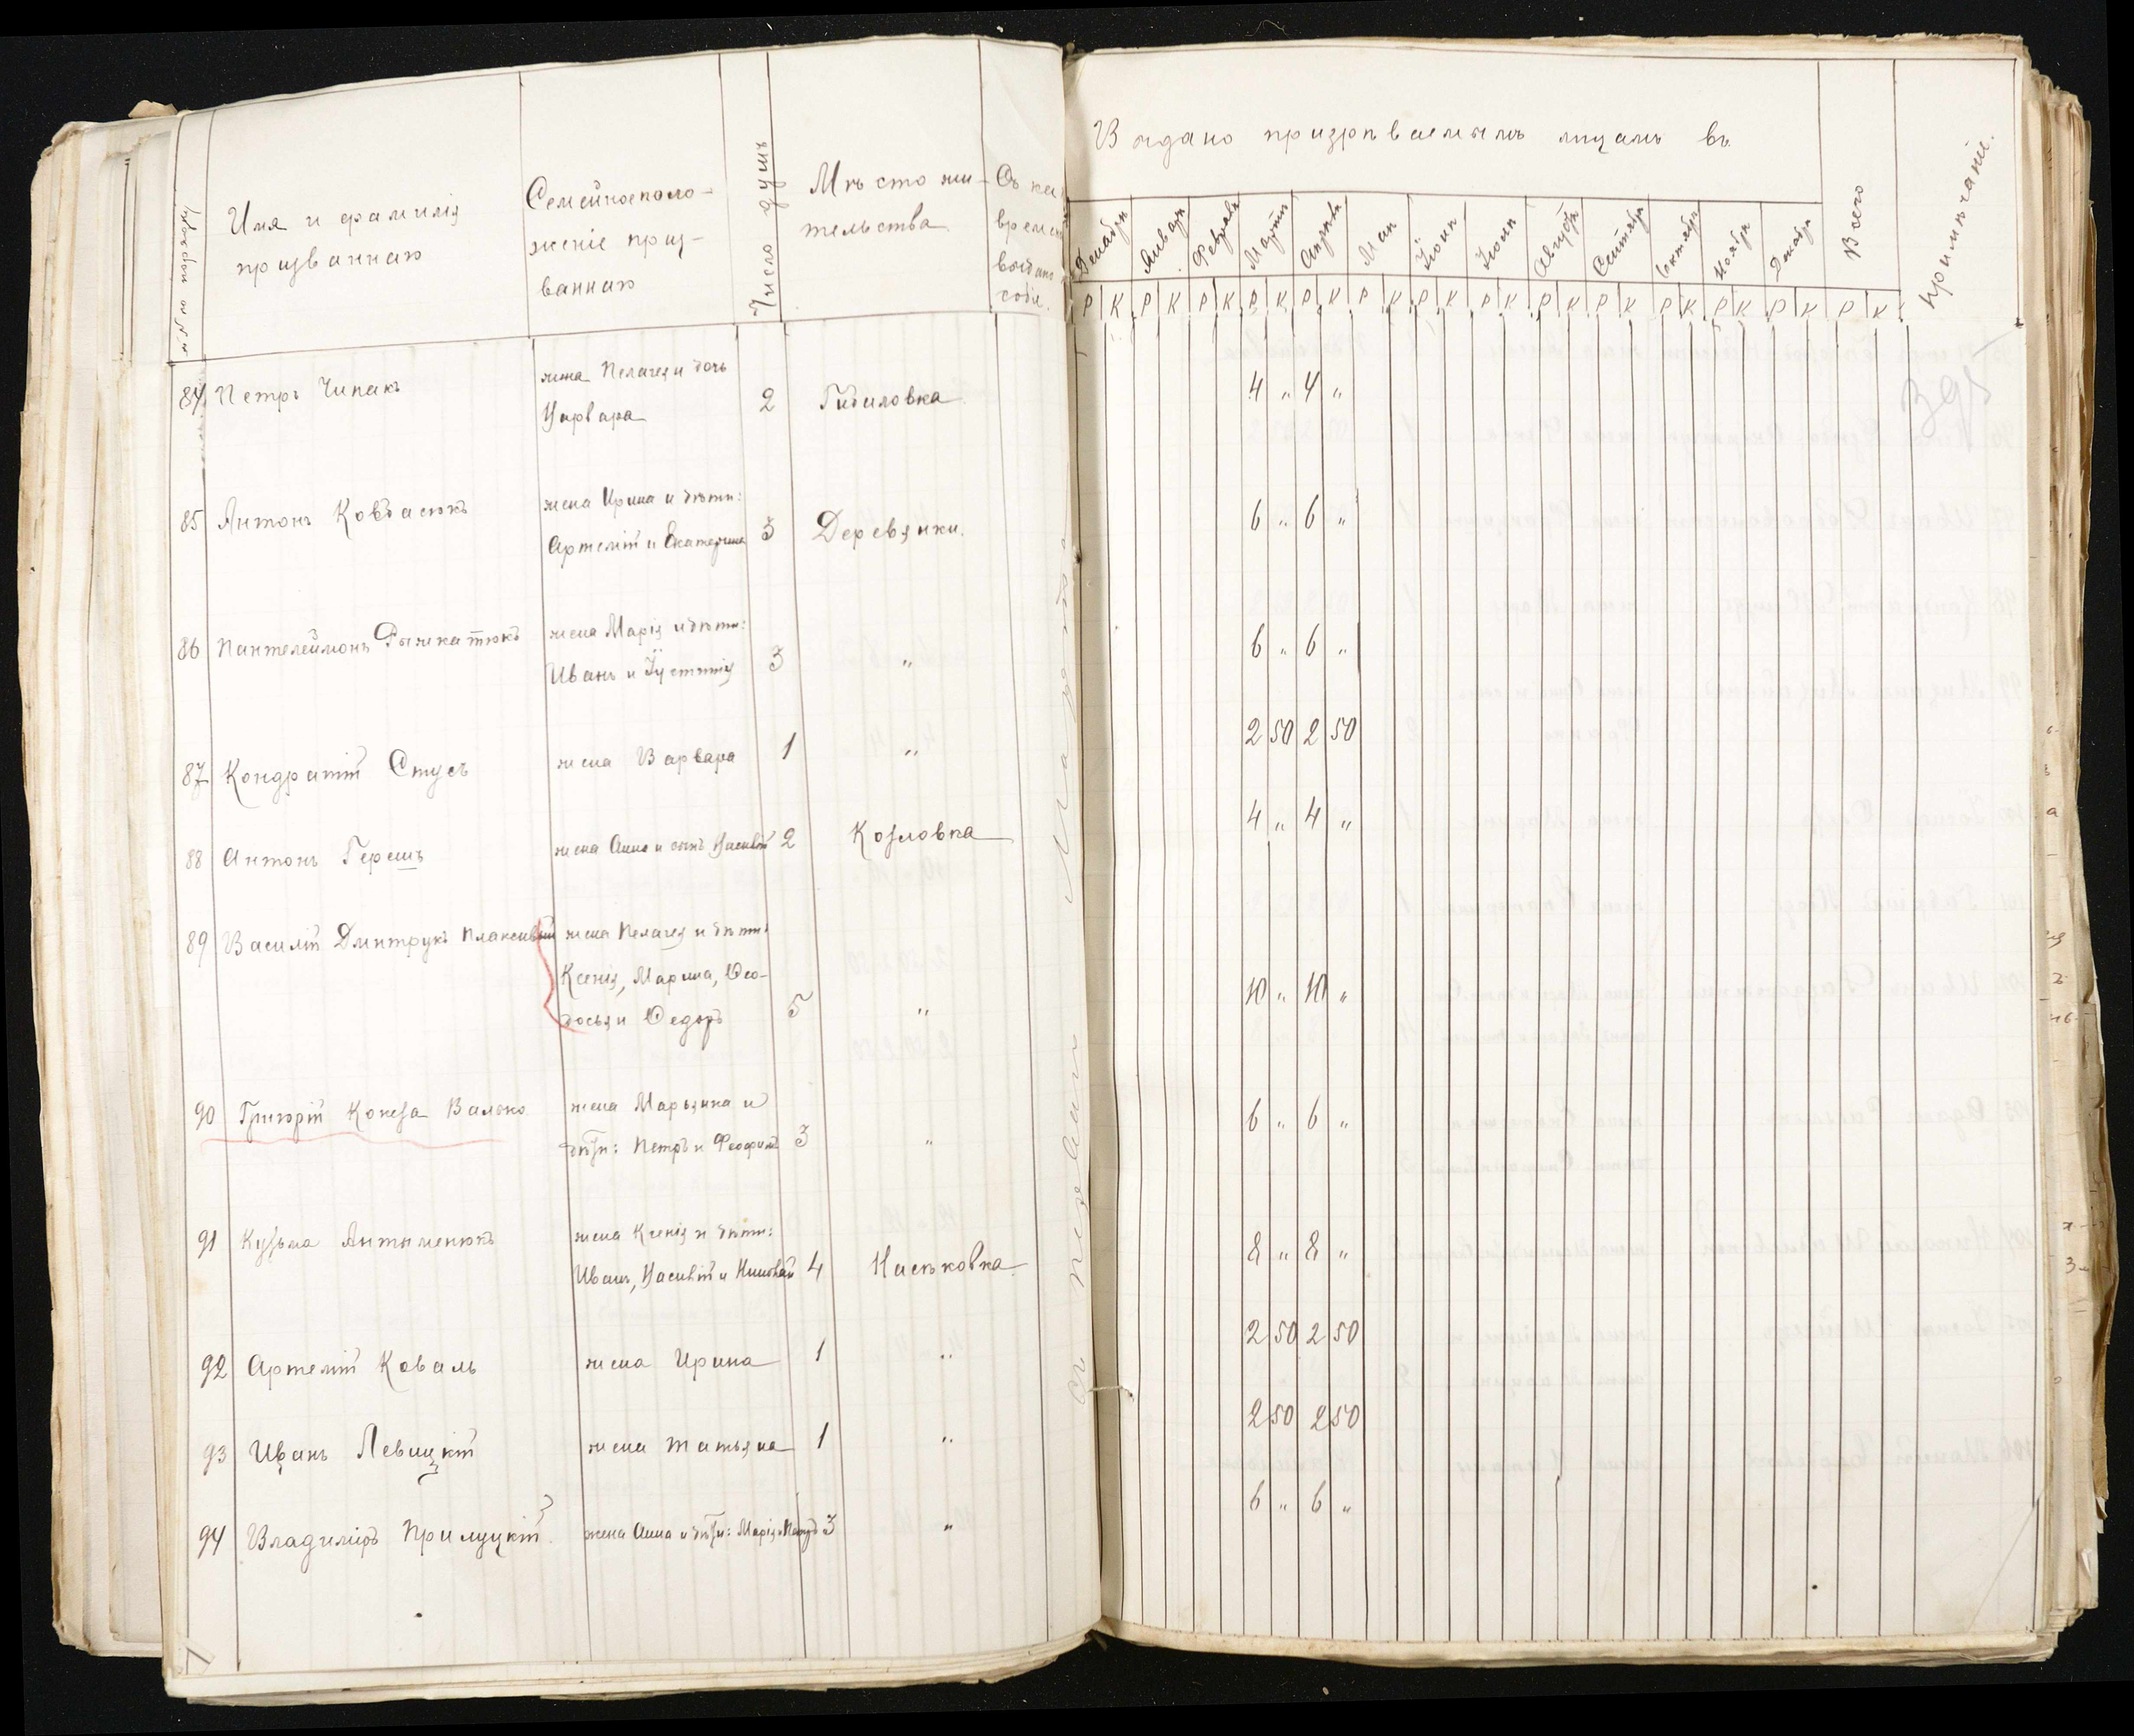 Имя и фамилія
призванныхъ
Семейное поло-
женіе приз-
ванныхъ
Число душъ
Мѣсто жи-
тельства
Съ как
времени
выдано
собіе.
Выдано призрѣваемымъ лицамъ въ
Декабрѣ Январѣ Февралѣ Мартѣ Апрѣлѣ Маѣ Іюнѣ Іюлѣ Августѣ Сентябрѣ Октябрѣ Ноябрѣ Декабрѣ Всего
Примѣчаніе.
Р К Р К Р К Р К Р К Р К Р К Р К Р К Р К Р К Р К Р К Р К
84 Петръ Чипакъ жена Пелагея и дочь
Варвара 2 Гидиловка 4 " 4 "
395
85 Антонъ Ковбасюкъ жена Ирина и дѣти:
Артемій и Екатерина 3 Деревянки. 6 " 6 "
86 Пантелеймонъ жена Марія и дѣти:
Иванъ и Іустинія 3 " 6 " 6 "
87 Кондратій Стусъ жена Варвара 1 " 2 50 2 50
88 Антонъ Герешъ жена Анна и сынъ Василій 2 Козловка 4 " 4 "
89 Василій Дмитрукъ Плаксивый жена Пелагея и дѣти:
Ксенія, Марина, Ѳео-
досья и Ѳедоръ 5 " 10 " 10 "
90 Григорій Кокоза Валоко жена Марьянна и
дѣти: Петръ и Феофилъ 3 " 6 " 6 "
91 Кузьма Антименюкъ жена Ксенія и дѣти:
Иванъ, Василій и Николай 4 Наськовка 8 " 8 "
92 Артемій Коваль жена Ирина 1 " 2 50 2 50
93 Иванъ Левицкій жена Татьяна 1 " 2 50 2 50
94 Владиміръ Прилуцкій жена Анна и дѣти: Марія 3 " 6 " 6 "
Съ Марта